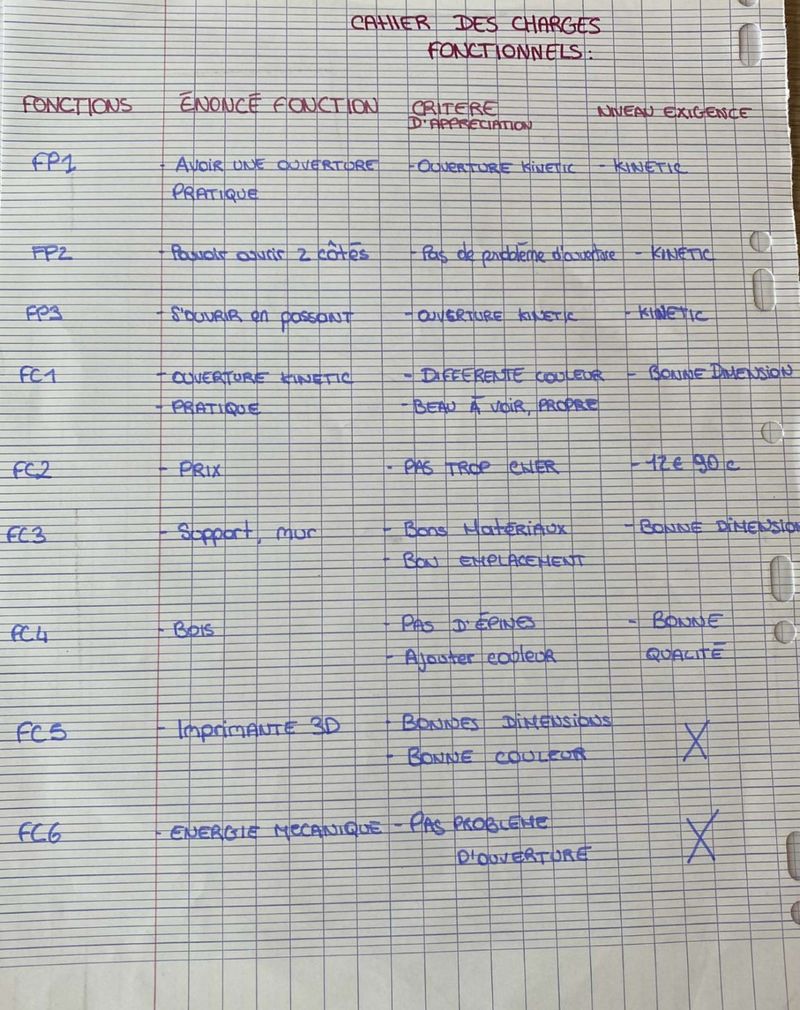 CAHIER DES CHARGES
FONCTIONNELS:
FONCTIONS ÉNONCÉ FONCTION CRITERE NIVEAU EXIGENCE
D'APPRÉCIATION
FP1 - AVOIR UNE OUVERTURE - OUVERTURE KINETIC - KINETIC
PRATIQUE
FP2 - Pouvoir ouvrir 2 côtés - Pas de problème d'ouverture - KINETIC
FP3 - S'OUVRIR en passant - OUVERTURE KINETIC - KINETIC
FC1 - OUVERTURE KINETIC - DIFFERENTE COULEUR - BONNE DIMENSION
- PRATIQUE - BEAU À VOIR, PROPRE
FC2 - PRIX - PAS TROP CHER - 12€ 90c
FC3 - Support, mur - Bons Matériaux - BONNE DIMENSION
- BON EMPLACEMENT
FC4 - BOIS - PAS D'ÉPINES - BONNE
- Ajouter couleur QUALITÉ
FC5 - IMPRIMANTE 3D - BONNES DIMENSIONS X
- BONNE COULEUR
FC6 - ENERGIE MECANIQUE - PAS PROBLEME X
D'OUVERTURE